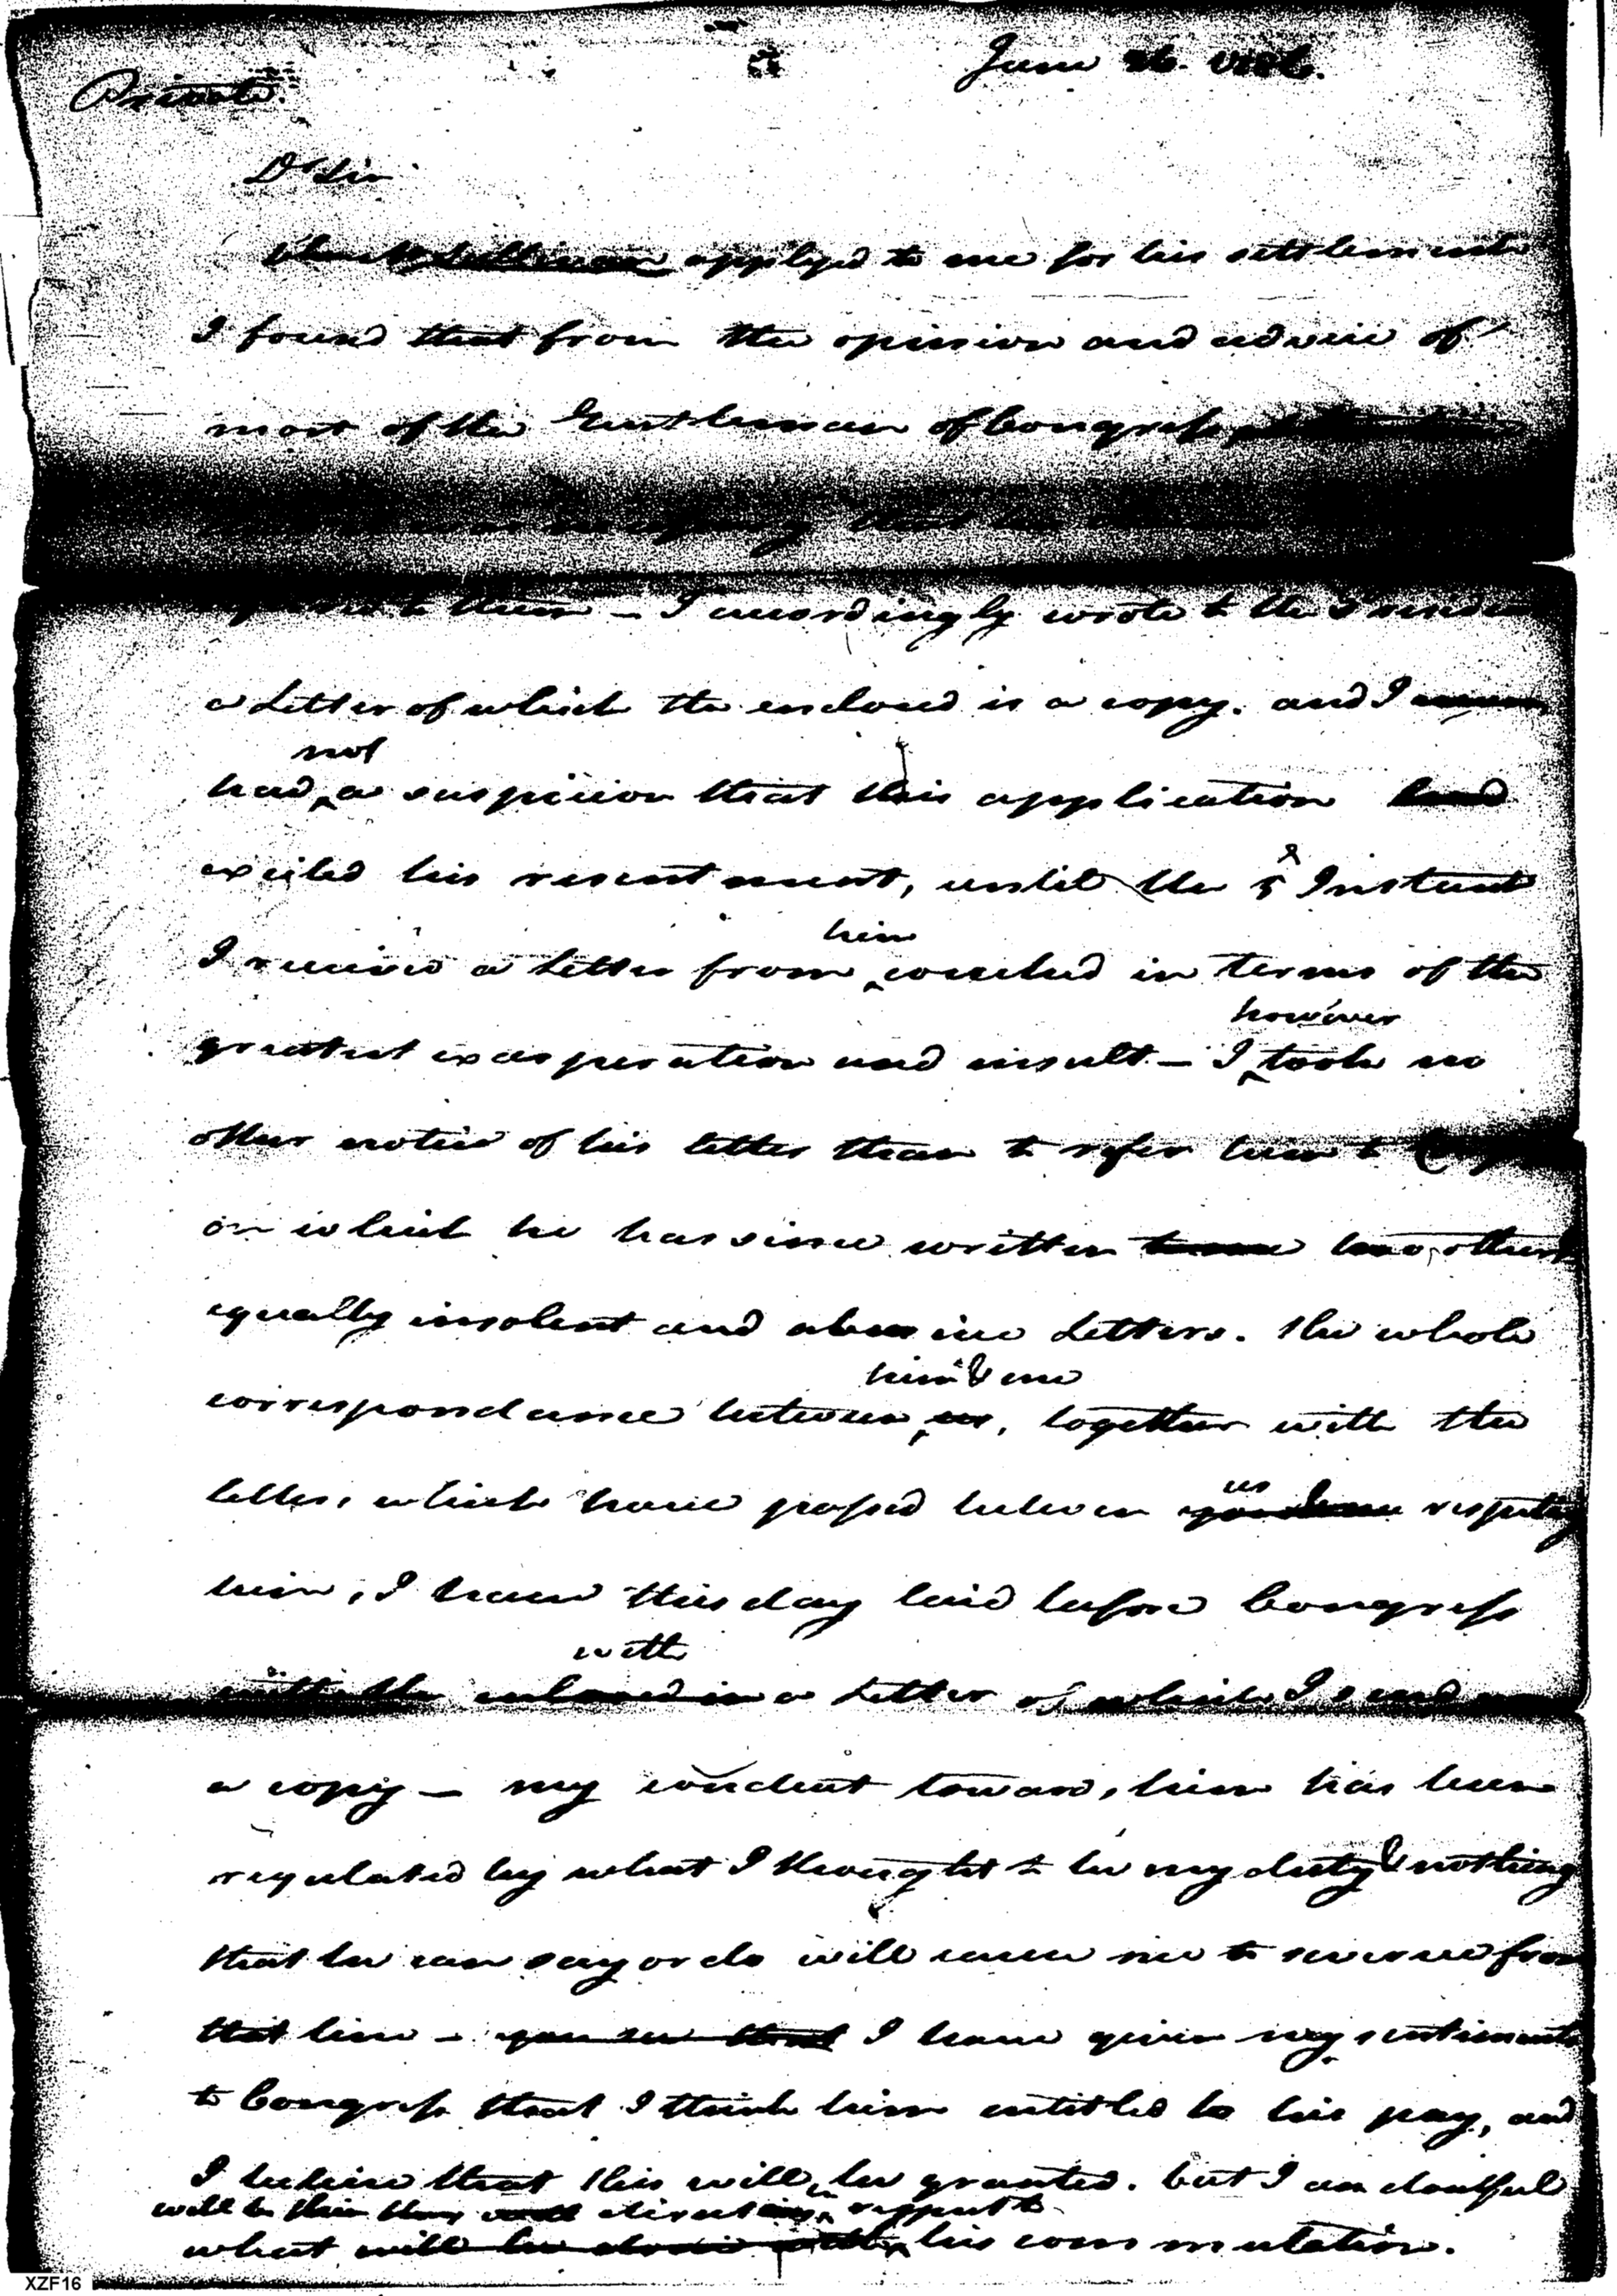 June 26. 1786.
Private.
Dr Sir
applyed to me for his settlements
I found that from the opinion and advice of
most of the Gentlemen of Congress
necessary that his
to them – I accordingly wrote to the
a Letter of which the enclosed is a copy. and I
not
had a suspicion that this application had
excited his resentment, until the 5 Instant
him
I received a letter from couched in terms of the
however
greatest exasperation and insult – I took no
other notice of his letter than to refer him to
on which he has since written two others
equally insolent and abusive Letters. The whole
him & me
correspondance between us, together with the
us
letters which have passed between you & me respecting
him, I have this day laid before Congress
with
with the enclosed in a Letter of which I send
a copy – my conduct towards him has been
regulated by what I thought to be my duty & nothing
that he can say or do will cause me to swerve from
that line – you see that I have given my sentiments
to Congress that I think him entitled to his pay, and
I believe that this will be granted. but I am doubtful
will be their directions respect to
what will be done with his commutation.
XZF16